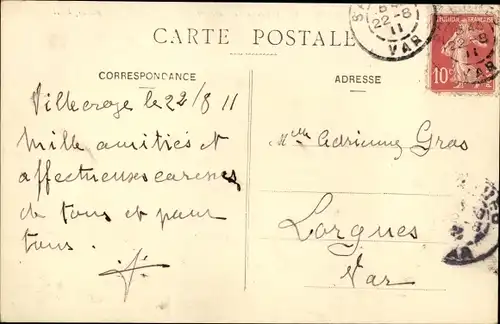 CARTE POSTALE
CORRESPONDANCE
Villecroze le 22/8 11
Mille amitiés et
affectueuses caresses
de tous et pour
tous.
ADRESSE
Mlle Adrienne Gras
Lorgues
Var
22-8
11
VAR
10